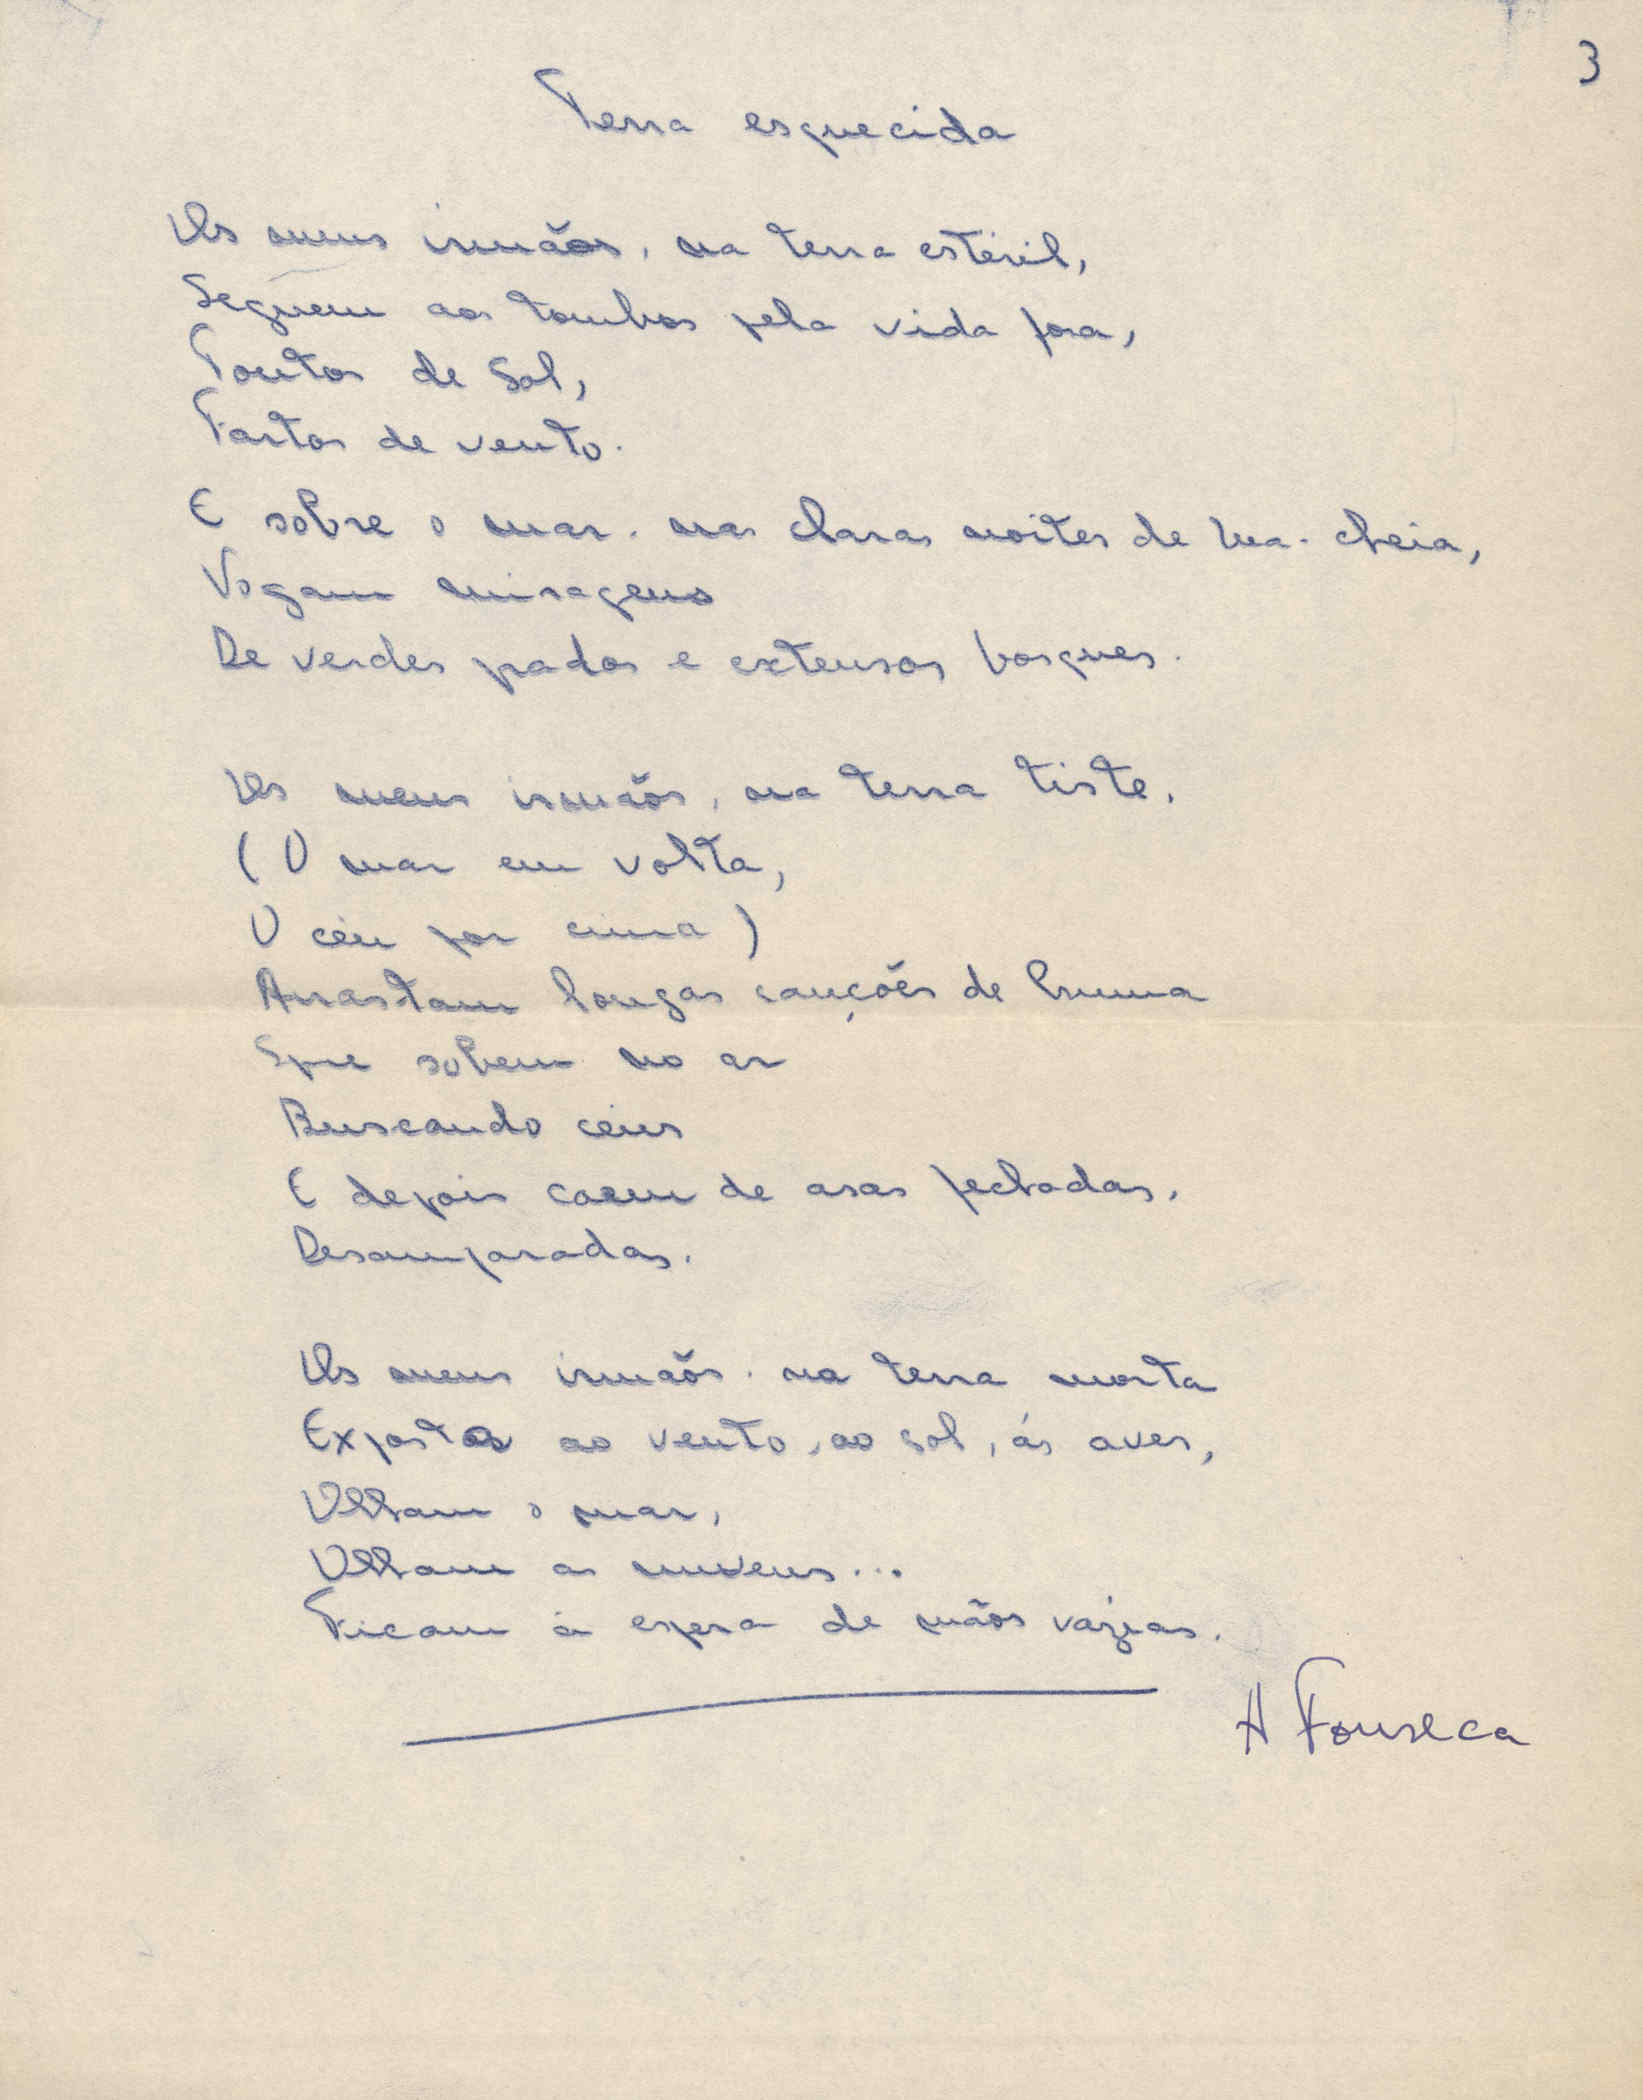 3
Terra esquecida
Os meus irmãos, na terra estéril,
Seguem aos tombos pela vida fora,
Tontos de Sol,
Fartos de vento.
E sobre o mar, nas claras noites de lua-cheia,
Vogam miragens
De verdes prados e extensos bosques.
Os meus irmãos, na terra triste,
(O mar em volta,
O céu por cima)
Arrastam longas canções de bruma
Que sobem no ar
Buscando céus
E depois caem de asas fechadas,
Desamparadas.
Os meus irmãos, na terra morta
Expostos ao vento, ao sol, ás aves,
Olham o mar,
Olham as nuvens...
Ficam à espera de mãos vazias.
A Fonseca